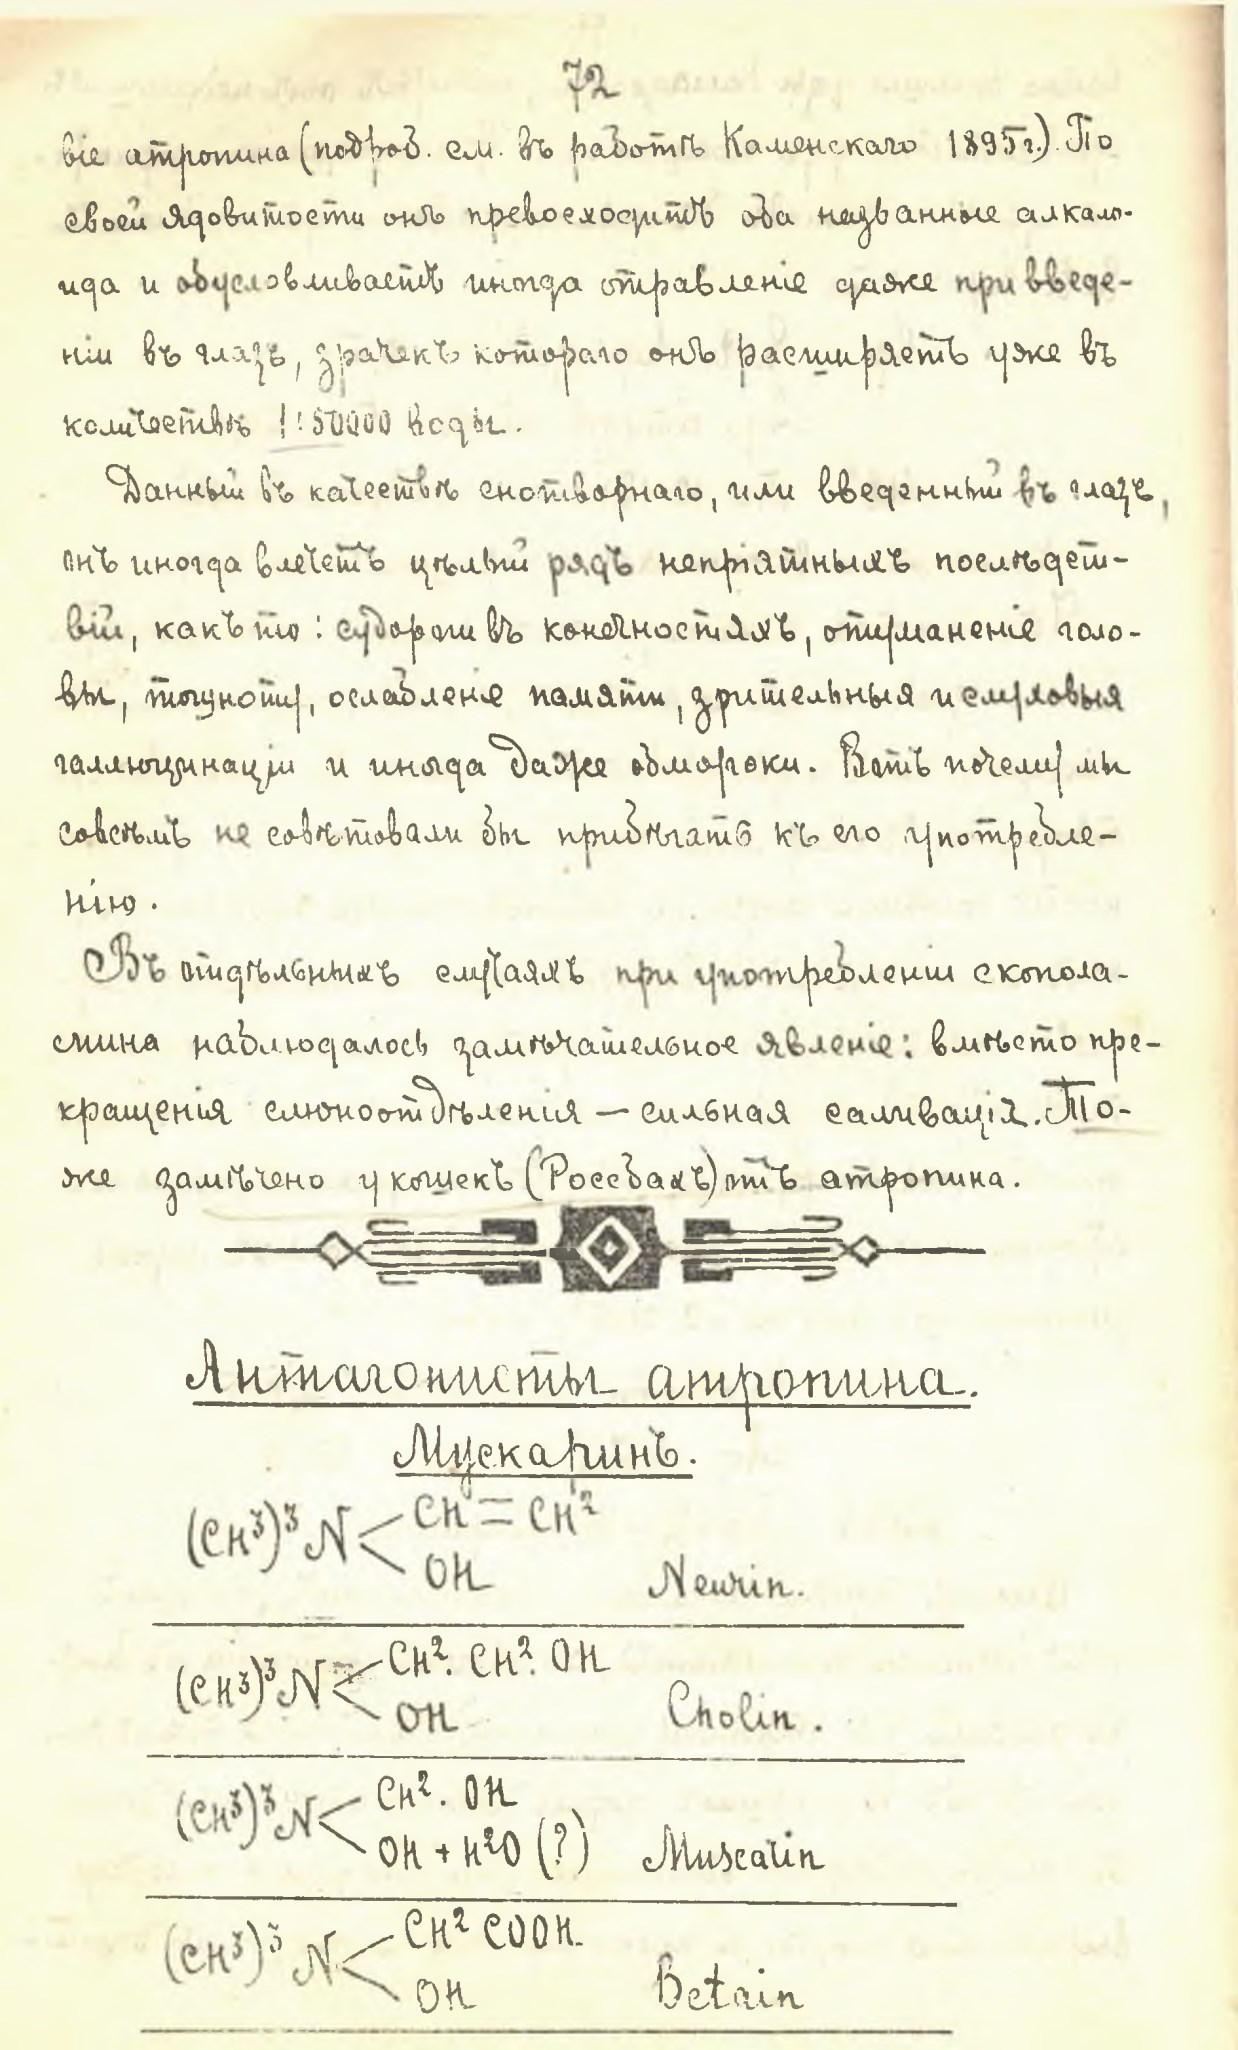 72
віе атропина (подроб. см. въ работѣ Каменскаго 1895 г.). По
своей ядовитости онъ превосходитъ оба названные алкало-
ида и обусловливаетъ иногда отравленіе даже при введе-
ніи въ глазъ, зрачекъ котораго онъ расширяетъ уже въ
количествѣ 1:50000 воды.
Данный въ качествѣ снотворнаго, или введенный въ глазъ,
онъ иногда влечетъ цѣлый рядъ непріятныхъ послѣдст-
вій, какъ то: судороги въ конечностяхъ, отуманеніе голо-
вы, тошноту, ослабленіе памяти, зрительныя и слуховыя
галлюцинаціи и иногда даже обмороки. Вотъ почему мы
совсѣмъ не совѣтовали бы прибѣгать къ его употребле-
нію.
Въ отдѣльныхъ случаяхъ при употребленіи скопола-
мина наблюдалось замѣчательное явленіе: вмѣсто пре-
кращенія слюноотдѣленія — сильная саливація. То-
же замѣчено у кошекъ (Россбахъ) отъ атропина.
Антагонисты атропина.
Мускаринъ.
(CH³)³N < CH = CH²
OH Neurin.
(CH³)³N < CH². CH². OH
OH Cholin.
(CH³)³N < CH². OH
OH + H²O (?) Muscarin
(CH³)³N < CH² COOH.
OH Betain